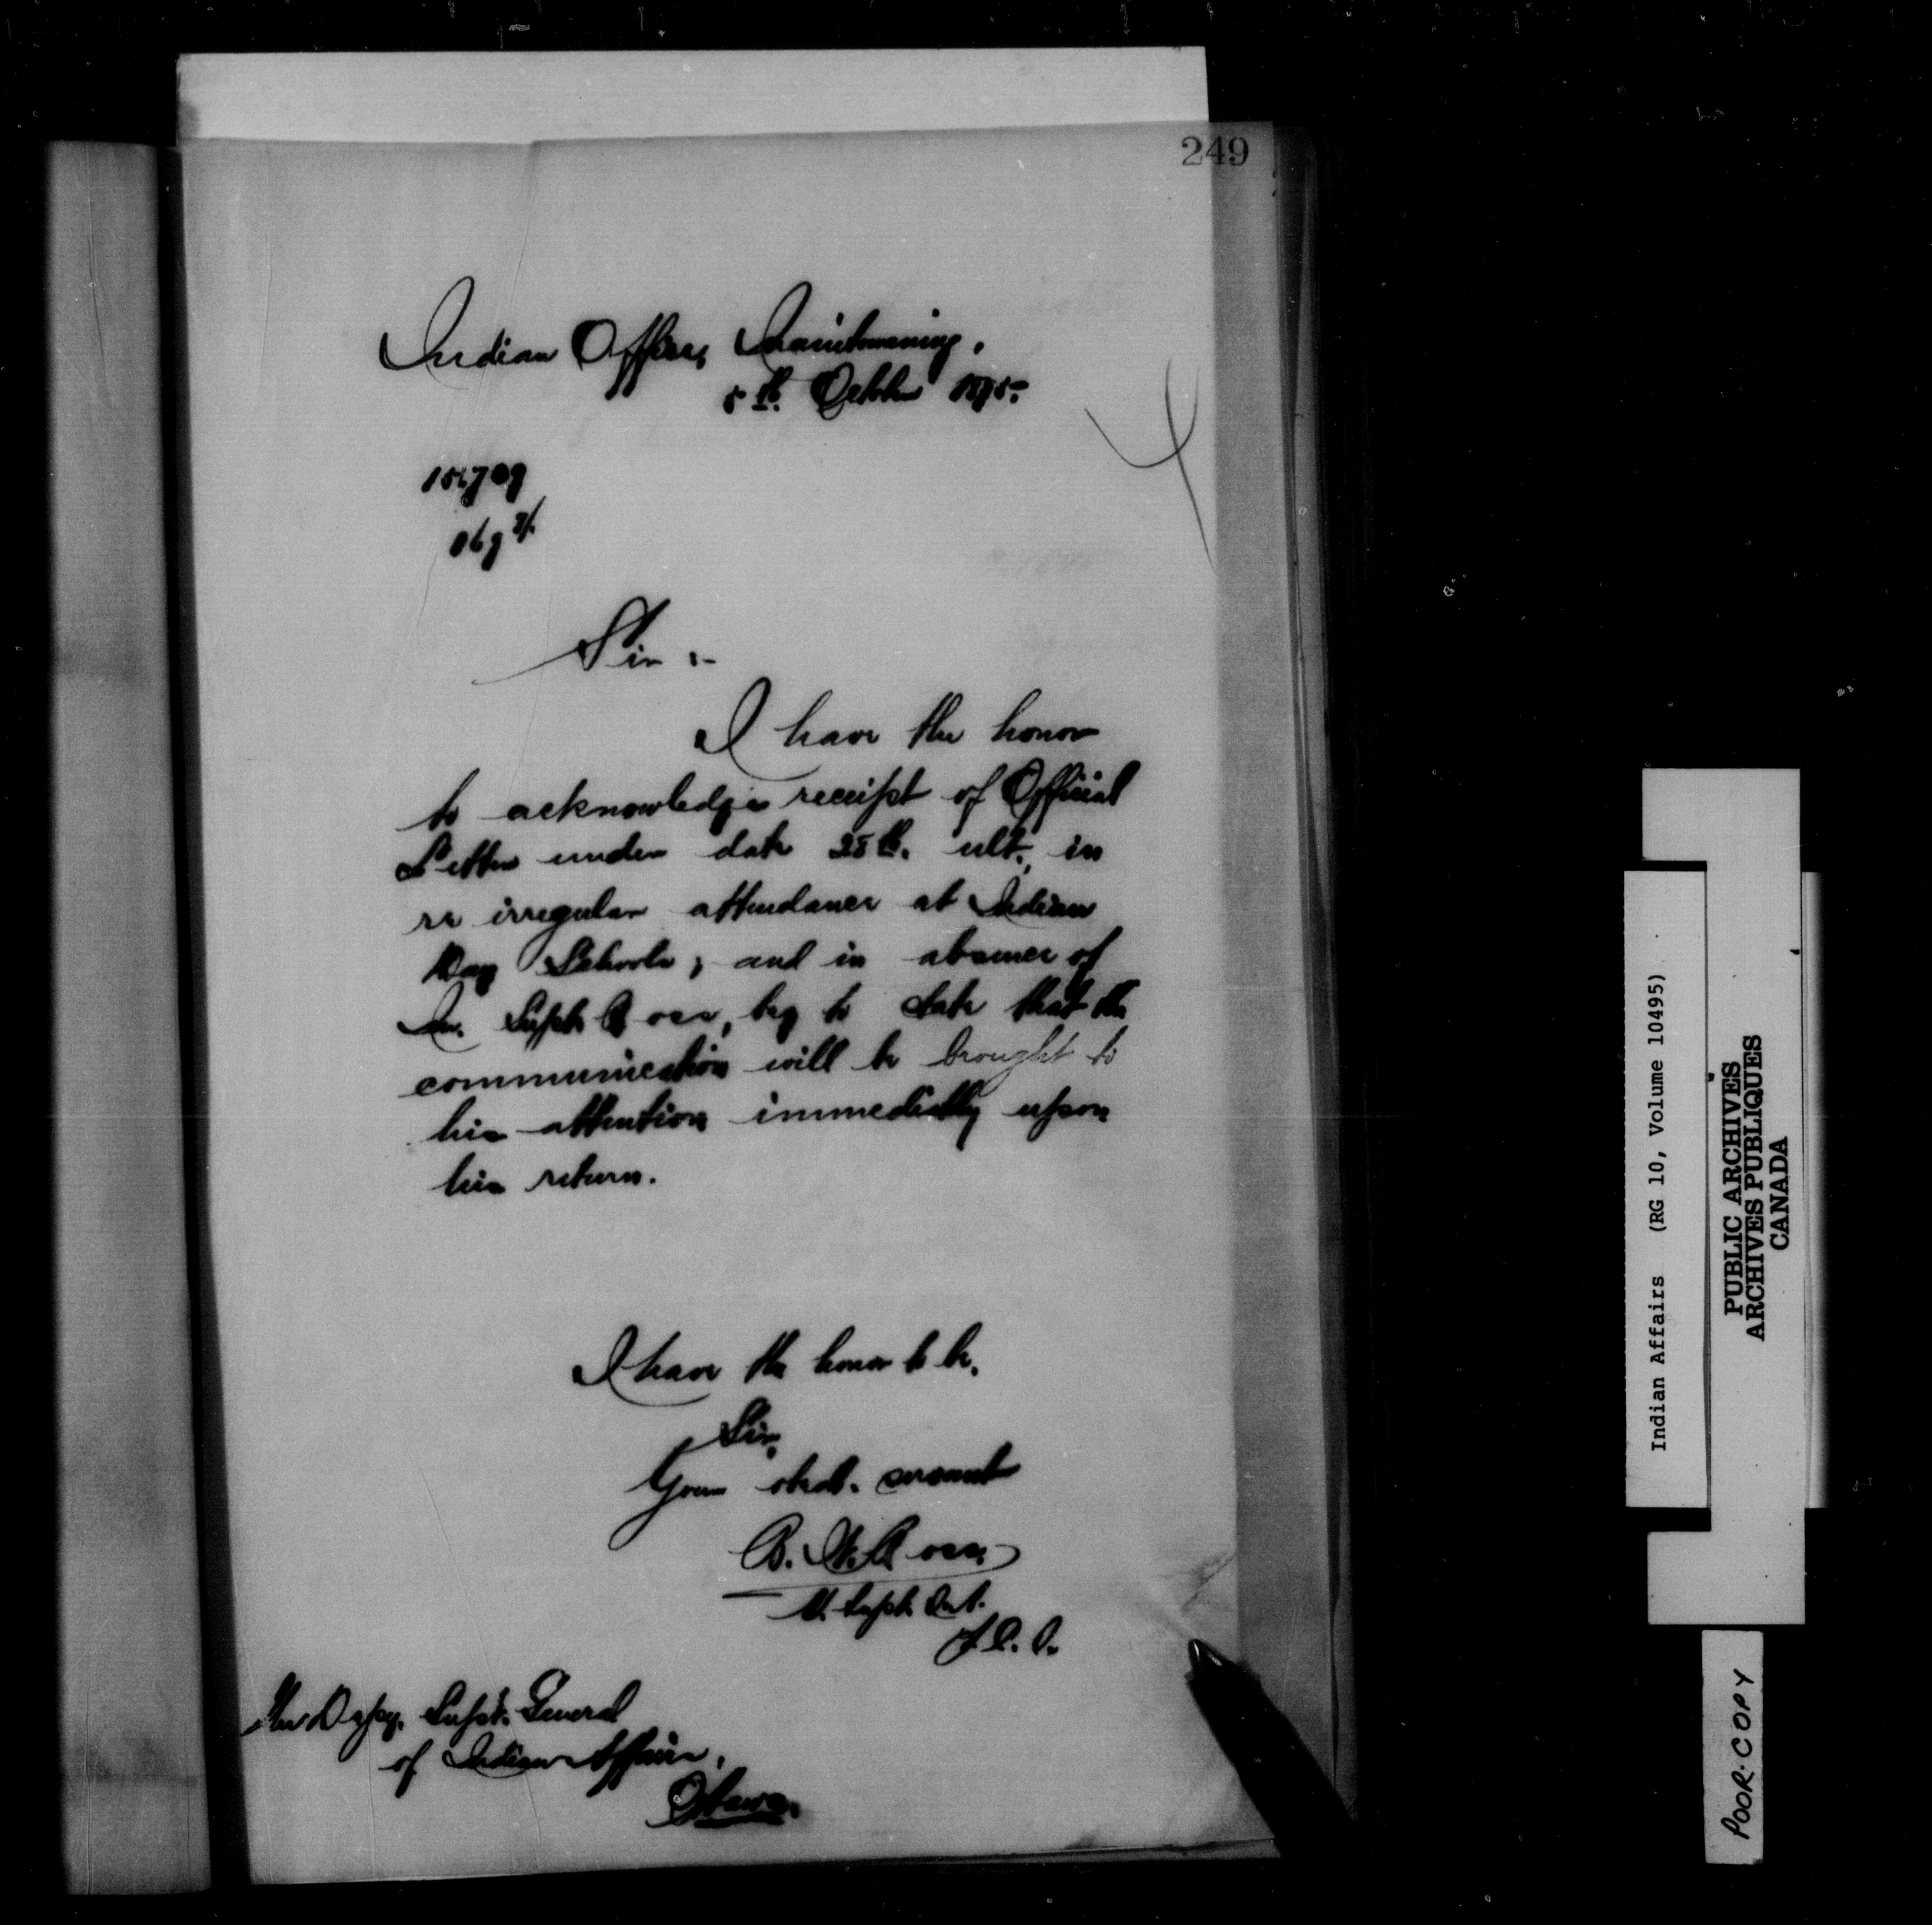 249
Indian Office, Manitowaning,
5th. October 1895.
Sir :-
I have the honor
to acknowledge receipt of Official
Letter under date 28th. ult., in
re irregular attendance at Indian
Day Schools; and in absence of
Supt. Ross, beg to state that the
communication will be brought to
his attention immediately upon
his return.
I have the honor to be,
Sir,
Your obedt. servant
B. W. Ross,
The Depy. Supt. General
of Indian Affairs,
Ottawa.
Indian Affairs (RG 10, Volume 10495)
PUBLIC ARCHIVES
ARCHIVES PUBLIQUES
CANADA
POOR COPY